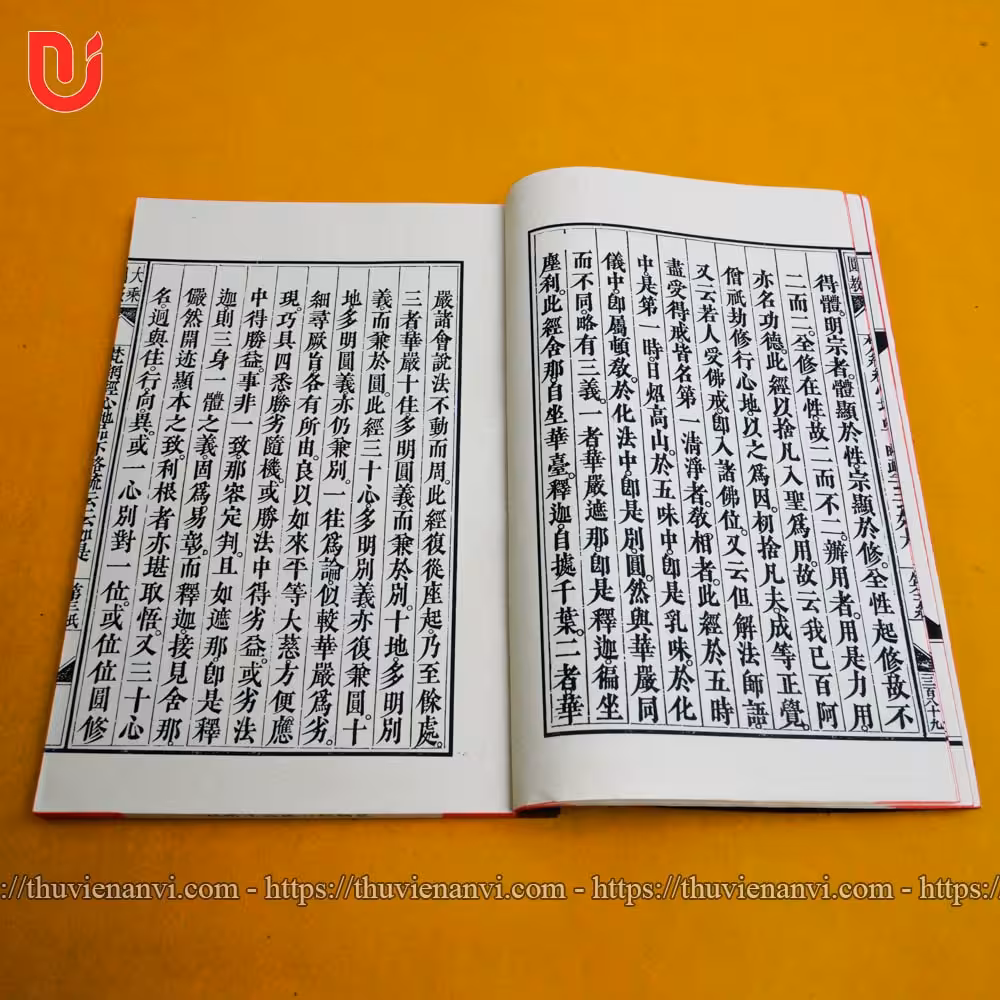 得體。明宗者。體顯於性。宗顯於修。全性起修。故不
二而二。全修在性。故二而不二。辨用者。用是力用。
亦名功德。此經以捨凡入聖爲用。故云我已百阿
僧祇劫修行心地。以之爲因。初捨凡夫。成等正覺。
又云若人受佛戒。卽入諸佛位。又云但解法師語。
盡受得戒。皆名第一淸淨者。敎相者。此經於五時
中是第一時。日炤高山。於五味中卽是乳味。於化
儀中卽屬頓敎。於化法中卽是別圓。然與華嚴同
而不同。略有三義。一者華嚴遮那。卽是釋迦徧坐
塵刹。此經舍那。自坐華臺。釋迦。自據千葉。二者華
三百八十九
嚴諸會說法不動而周。此經復從座起。乃至餘處。
三者華嚴十住多明圓義。而兼於別。十地多明別
義。而兼於圓。此經三十心多明別義。亦復兼圓。十
地多明圓義。亦仍兼別。一往爲論。似較華嚴爲劣。
細尋厥旨。各有所由。良以如來平等大慈。方便應
現。巧具四悉。勝劣隨機。或勝法中得劣益。或劣法
中得勝益。事非一致。那容定判。且如遮那。卽是釋
迦。則三身一體之義。固爲易彰。而釋迦接見舍那。
儼然開迹顯本之致。利根者亦堪取悟。又三十心
名。迥與住。行。向。異。或一心別對一位。或位位圓修
大乘
梵網經心地品
第三
https://thuvienanvi.com - https://thuvienanvi.com - https://thuvienanvi.com